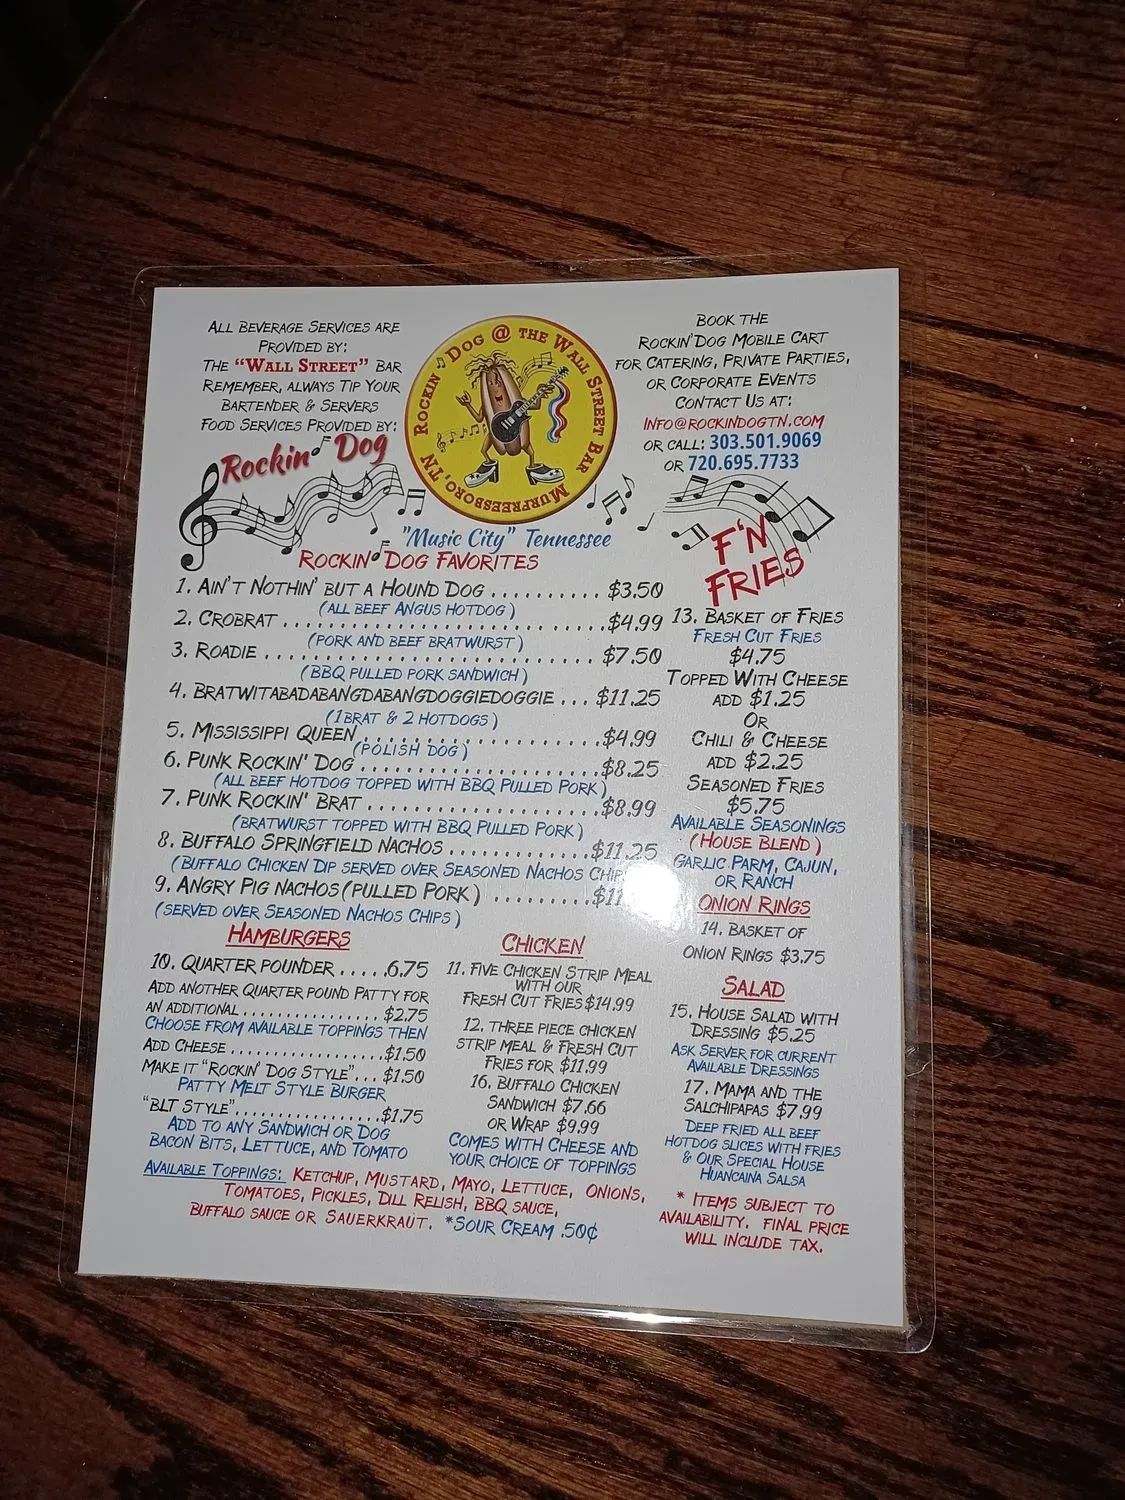 All Beverage Services are
Provided by:
The "Wall Street" Bar
Remember, always Tip Your
Bartender & Servers
Food Services Provided by:
Rockin' Dog
Rockin' Dog @ the Wall Street Bar
Murfreesboro, TN
"Music City" Tennessee
Book the
Rockin' Dog Mobile Cart
for Catering, Private Parties,
or Corporate Events
Contact Us at:
info@rockindogtn.com
or call: 303.501.9069
or 720.695.7733
Rockin' Dog Favorites
1. Ain't Nothin' but a Hound Dog .......... $3.50
(All Beef Angus Hotdog)
2. Crobrat ..............................$4.99
(Pork and Beef Bratwurst)
3. Roadie .............................. $7.50
(BBQ pulled pork sandwich)
4. Bratwitabadabangdabangdoggiedoggie ... $11.25
(1Brat & 2 Hotdogs)
5. Mississippi Queen......................$4.99
(Polish Dog)
6. Punk Rockin' Dog ......................$8.25
(All beef Hotdog topped with BBQ Pulled Pork)
7. Punk Rockin' Brat ......................$8.99
(Bratwurst topped with BBQ Pulled Pork)
8. Buffalo Springfield Nachos .............$11.25
(Buffalo Chicken Dip served over Seasoned Nachos
9. Angry Pig Nachos (Pulled Pork) .........
(served over Seasoned Nachos Chips)
F'N
Fries
13. Basket of Fries
Fresh Cut Fries
$4.75
Topped With Cheese
add $1.25
Or
Chili & Cheese
add $2.25
Seasoned Fries
$5.75
Available Seasonings
(House Blend)
Garlic Parm, Cajun,
or Ranch
Onion Rings
14. Basket of
Onion Rings $3.75
Salad
15. House Salad with
Dressing $5.25
Ask Server for current
Available Dressings
17. Mama and the
Salchipapas $7.99
Deep fried all beef
hotdog slices with fries
& Our Special House
Huancaina Salsa
* Items subject to
availability. Final price
will include tax.
Hamburgers
10. Quarter pounder .....6.75
Add another Quarter pound Patty for
an additional ................ $2.75
Choose from available toppings then
Add Cheese ..................$1.50
Make it "Rockin' Dog Style"... $1.50
Patty Melt Style Burger
"BLT Style"..................$1.75
Add to any Sandwich or Dog
Bacon Bits, Lettuce, and Tomato
Chicken
11. Five Chicken Strip Meal
with our
Fresh Cut Fries $14.99
12. Three piece chicken
strip meal & Fresh Cut
Fries for $11.99
16. Buffalo Chicken
Sandwich $7.66
or Wrap $9.99
Comes with Cheese and
your choice of toppings
Available Toppings: Ketchup, Mustard, Mayo, Lettuce, Onions,
Tomatoes, Pickles, Dill Relish, BBQ sauce,
Buffalo sauce or Sauerkraut. *Sour Cream .50¢